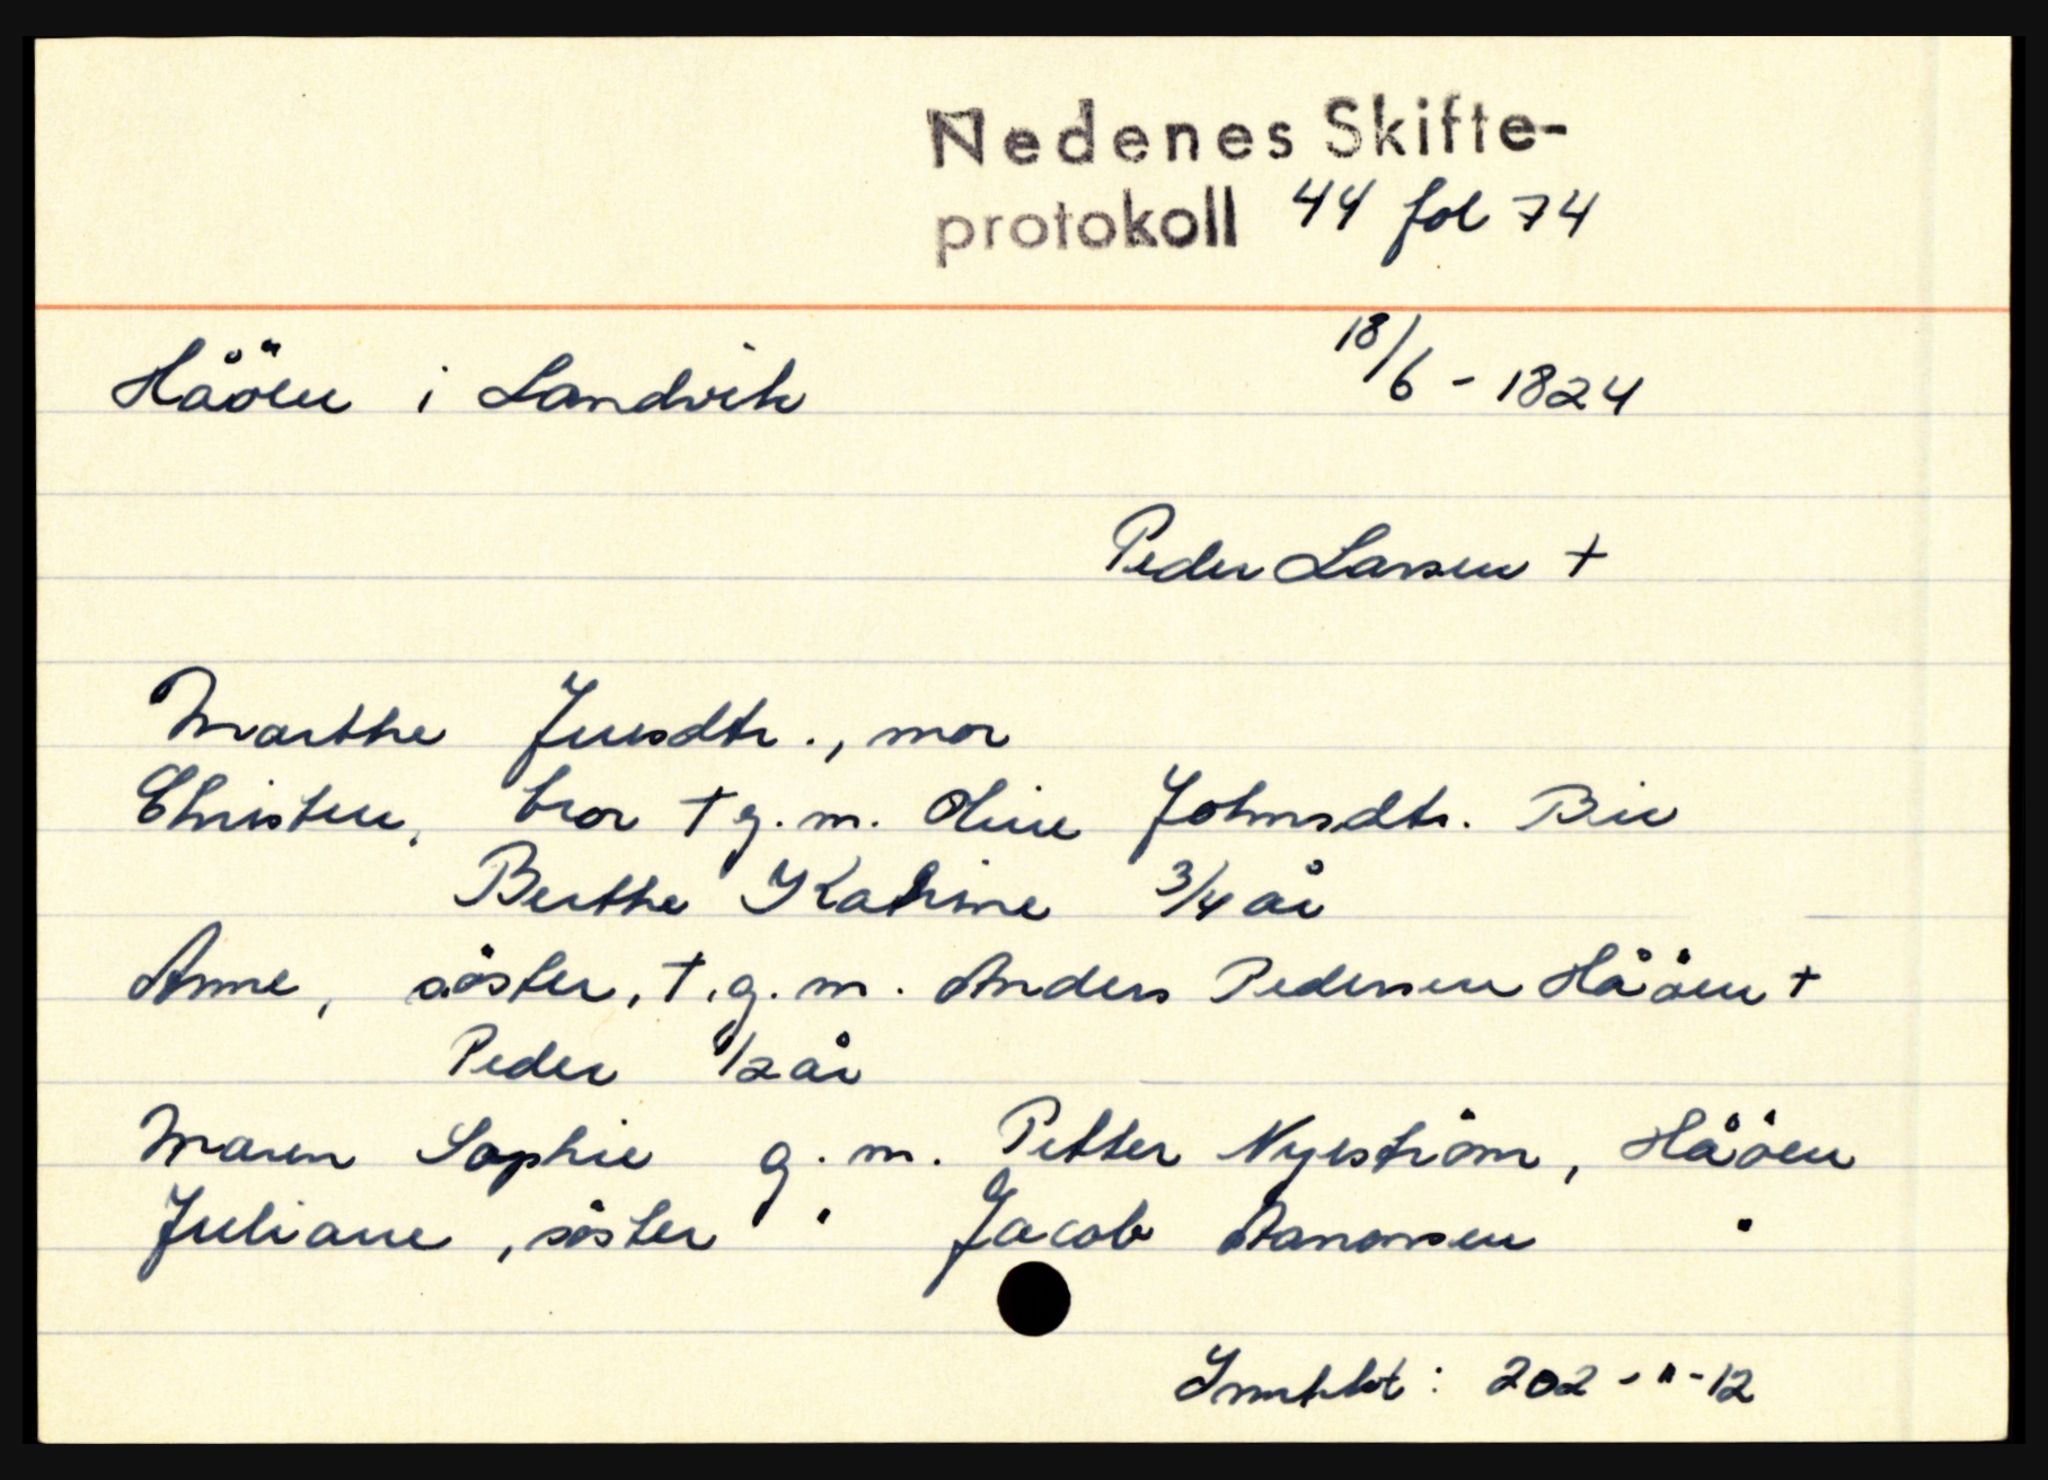 Nedenes Skifte-
protokoll 44 fol 74
18/6 - 1824
Håöen i Landvik
Peder Larsen +
Marthe Juusdtr., mor
Christen, bror + g.m. Oline Johnsdtr. Bie
Berthe Katrine 3/4 år
Anne, söster, +, g.m. Anders Pedersen Håöen +
Peder 1/2 år
Maren Sophie g.m. Petter Nyeström, Håöen
Juliane, söster " Jacob Aanonsen "
: 202 - " - 12